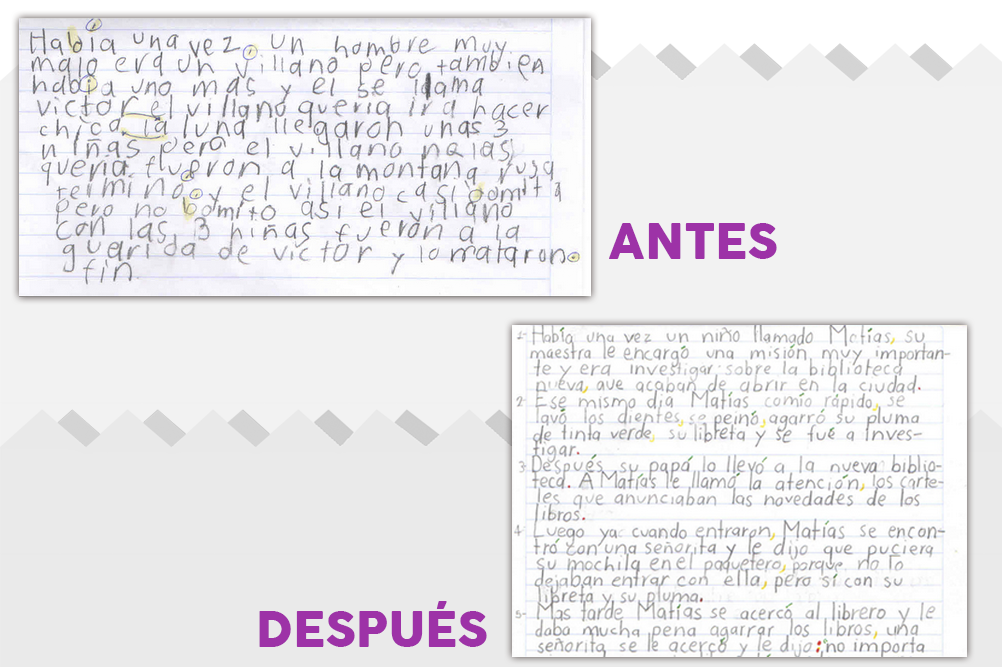 Había una vez, un hombre muy
malo era un villano pero tambien
habia uno más y el se llama
victor el villano queria ir a hacer
chica la luna llegaron unas 3
niñas pero el villano no las
queria fueron a la montana rusa
termino y el villano casi bomita
pero no bomito asi el villano
con las 3 niñas fueron a la
guarida de victor y lo mataron.
fin
ANTES
1- Había una vez un niño llamado Matías, su
maestra le encargó una misión muy importan-
te y era investigar sobre la biblioteca
nueva, que acaban de abrir en la ciudad.
2- Ese mismo día Matías comío rápido, se
lavó los dientes, se peinó, agarró su pluma
de tinta verde, su libreta y se fué a inves-
tigar.
3- Después su papá lo llevó a la nueva biblio-
teca. A Matías le llamó la atención, los carte-
les que anunciaban las novedades de los
libros.
4- Luego ya cuando entraron, Matías se encon-
tró con una señorita y le dijo que puciera
su mochila en el paquetero, porque no lo
dejaban entrar con ella, pero sí con su
libreta y su pluma.
5- Mas tarde Matías se acercó al librero y le
daba mucha pena agarrar los libros, una
señorita se le acercó y le dijo: no importa
DESPUÉS